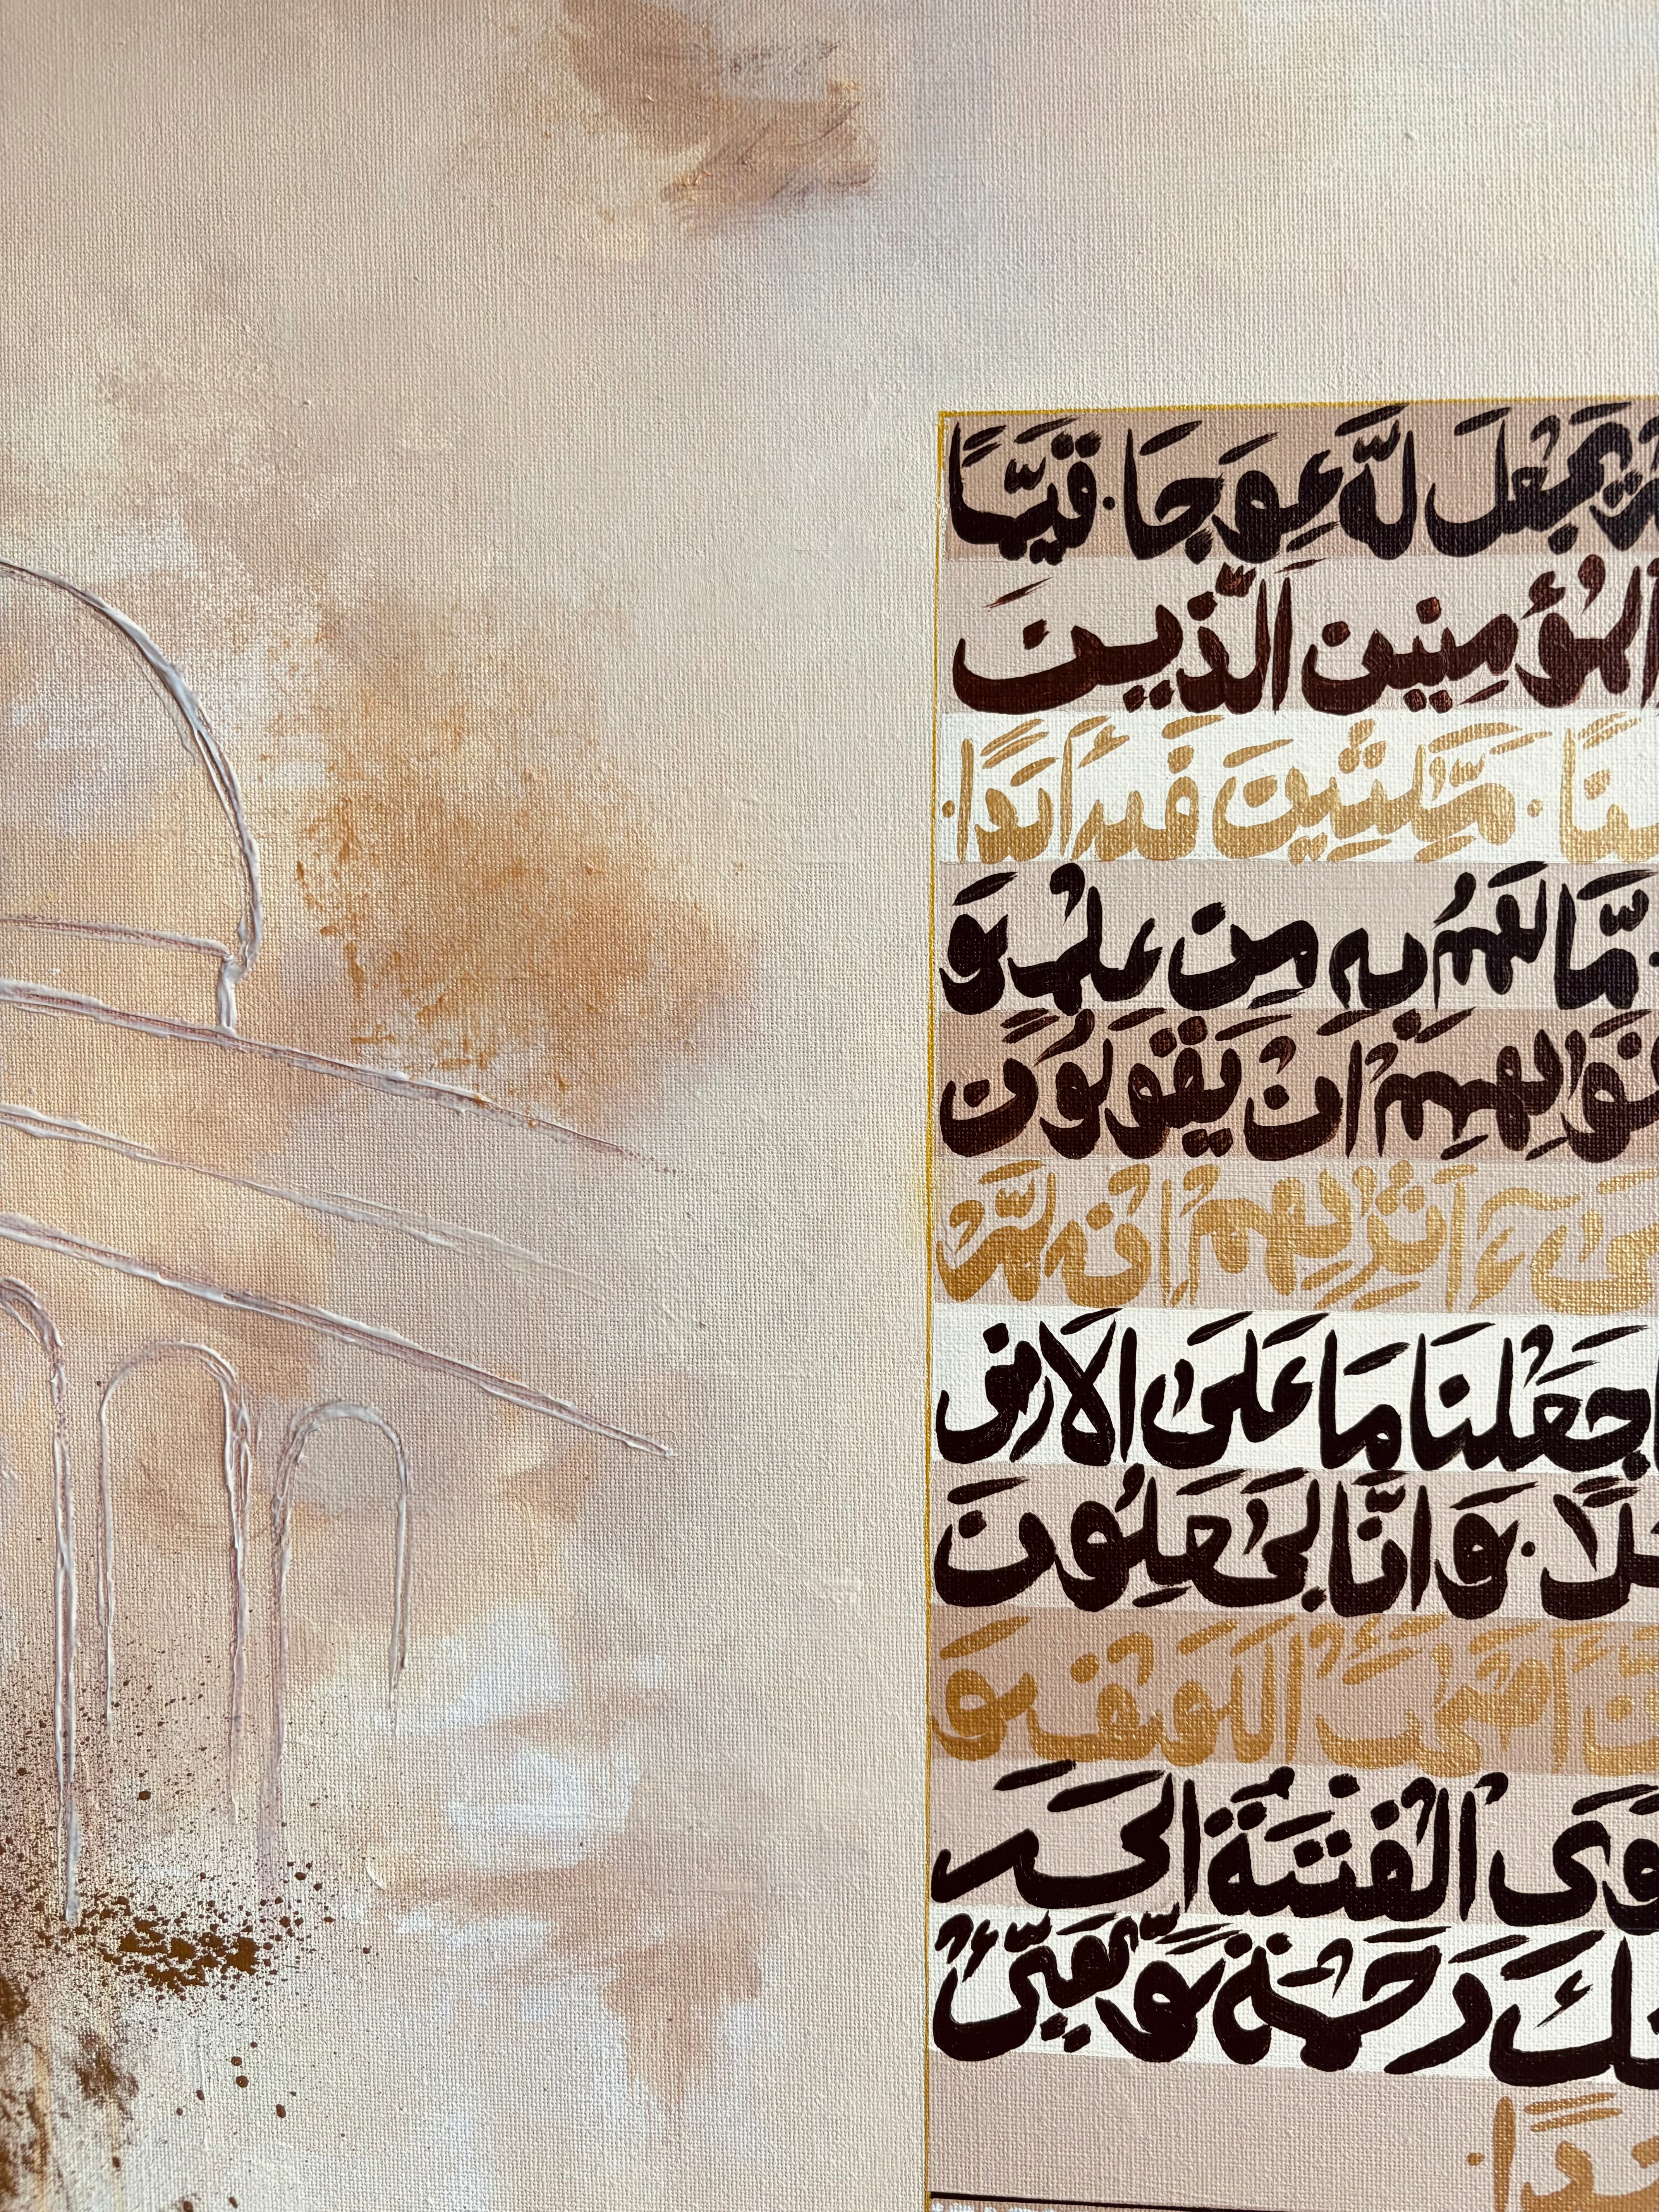 يَجْعَلْ لَّهٗ عِوَجَا · قَيِّمًا
الْمُؤْمِنِينَ الَّذِينَ
مّٰكِثِينَ فِيهِ أَبَدًا ·
مَّا لَهُمْ بِهِ مِنْ عِلْمٍ وَ
اِنْ يَقُولُونَ
ءَاثٰرِهِمْ اِنْ لَّمْ
جَعَلْنَا مَا عَلَى الْاَرْضِ
· وَاِنَّا لَجٰعِلُونَ
أَصْحٰبَ الْكَهْفِ وَ
الْفِتْيَةُ اِلَى
رَحْمَةً وَّهَيِّئْ